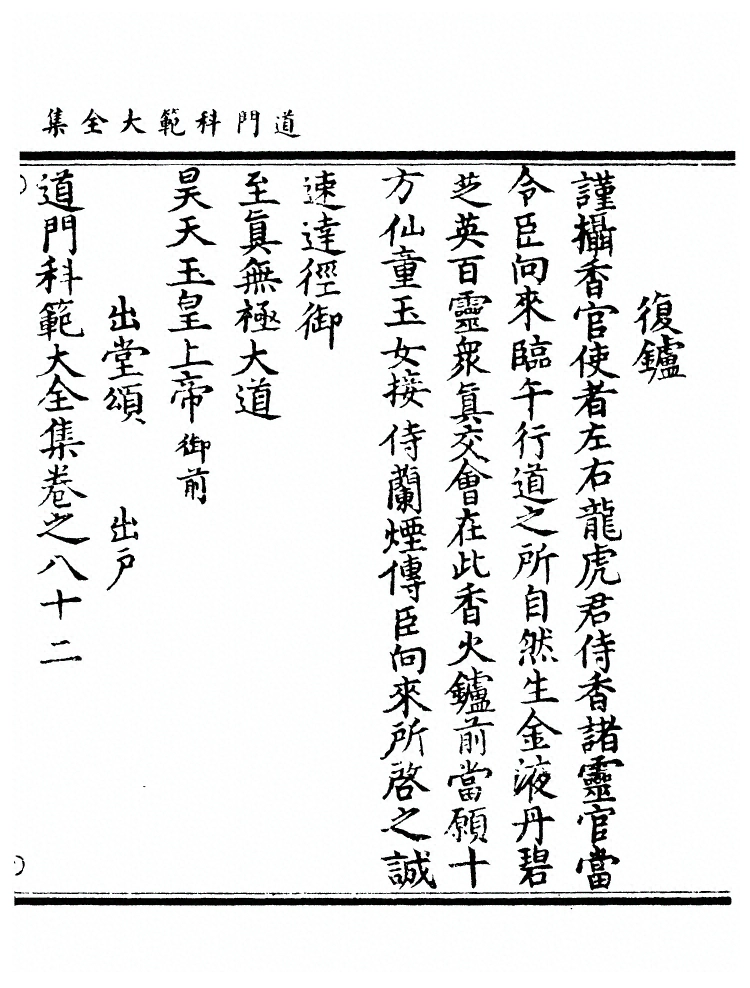 道門科範大全集
復鑪
謹攝香官使者左右龍虎君侍香諸靈官當
令臣向來臨午行道之所自然生金液丹碧
芝英百靈眾眞交會在此香火鑪前當願十
方仙童玉女接侍蘭煙傳臣向來所啓之誠
速達徑御
至眞無極大道
昊天玉皇上帝御前
出堂頌 出戶
道門科範大全集卷之八十二